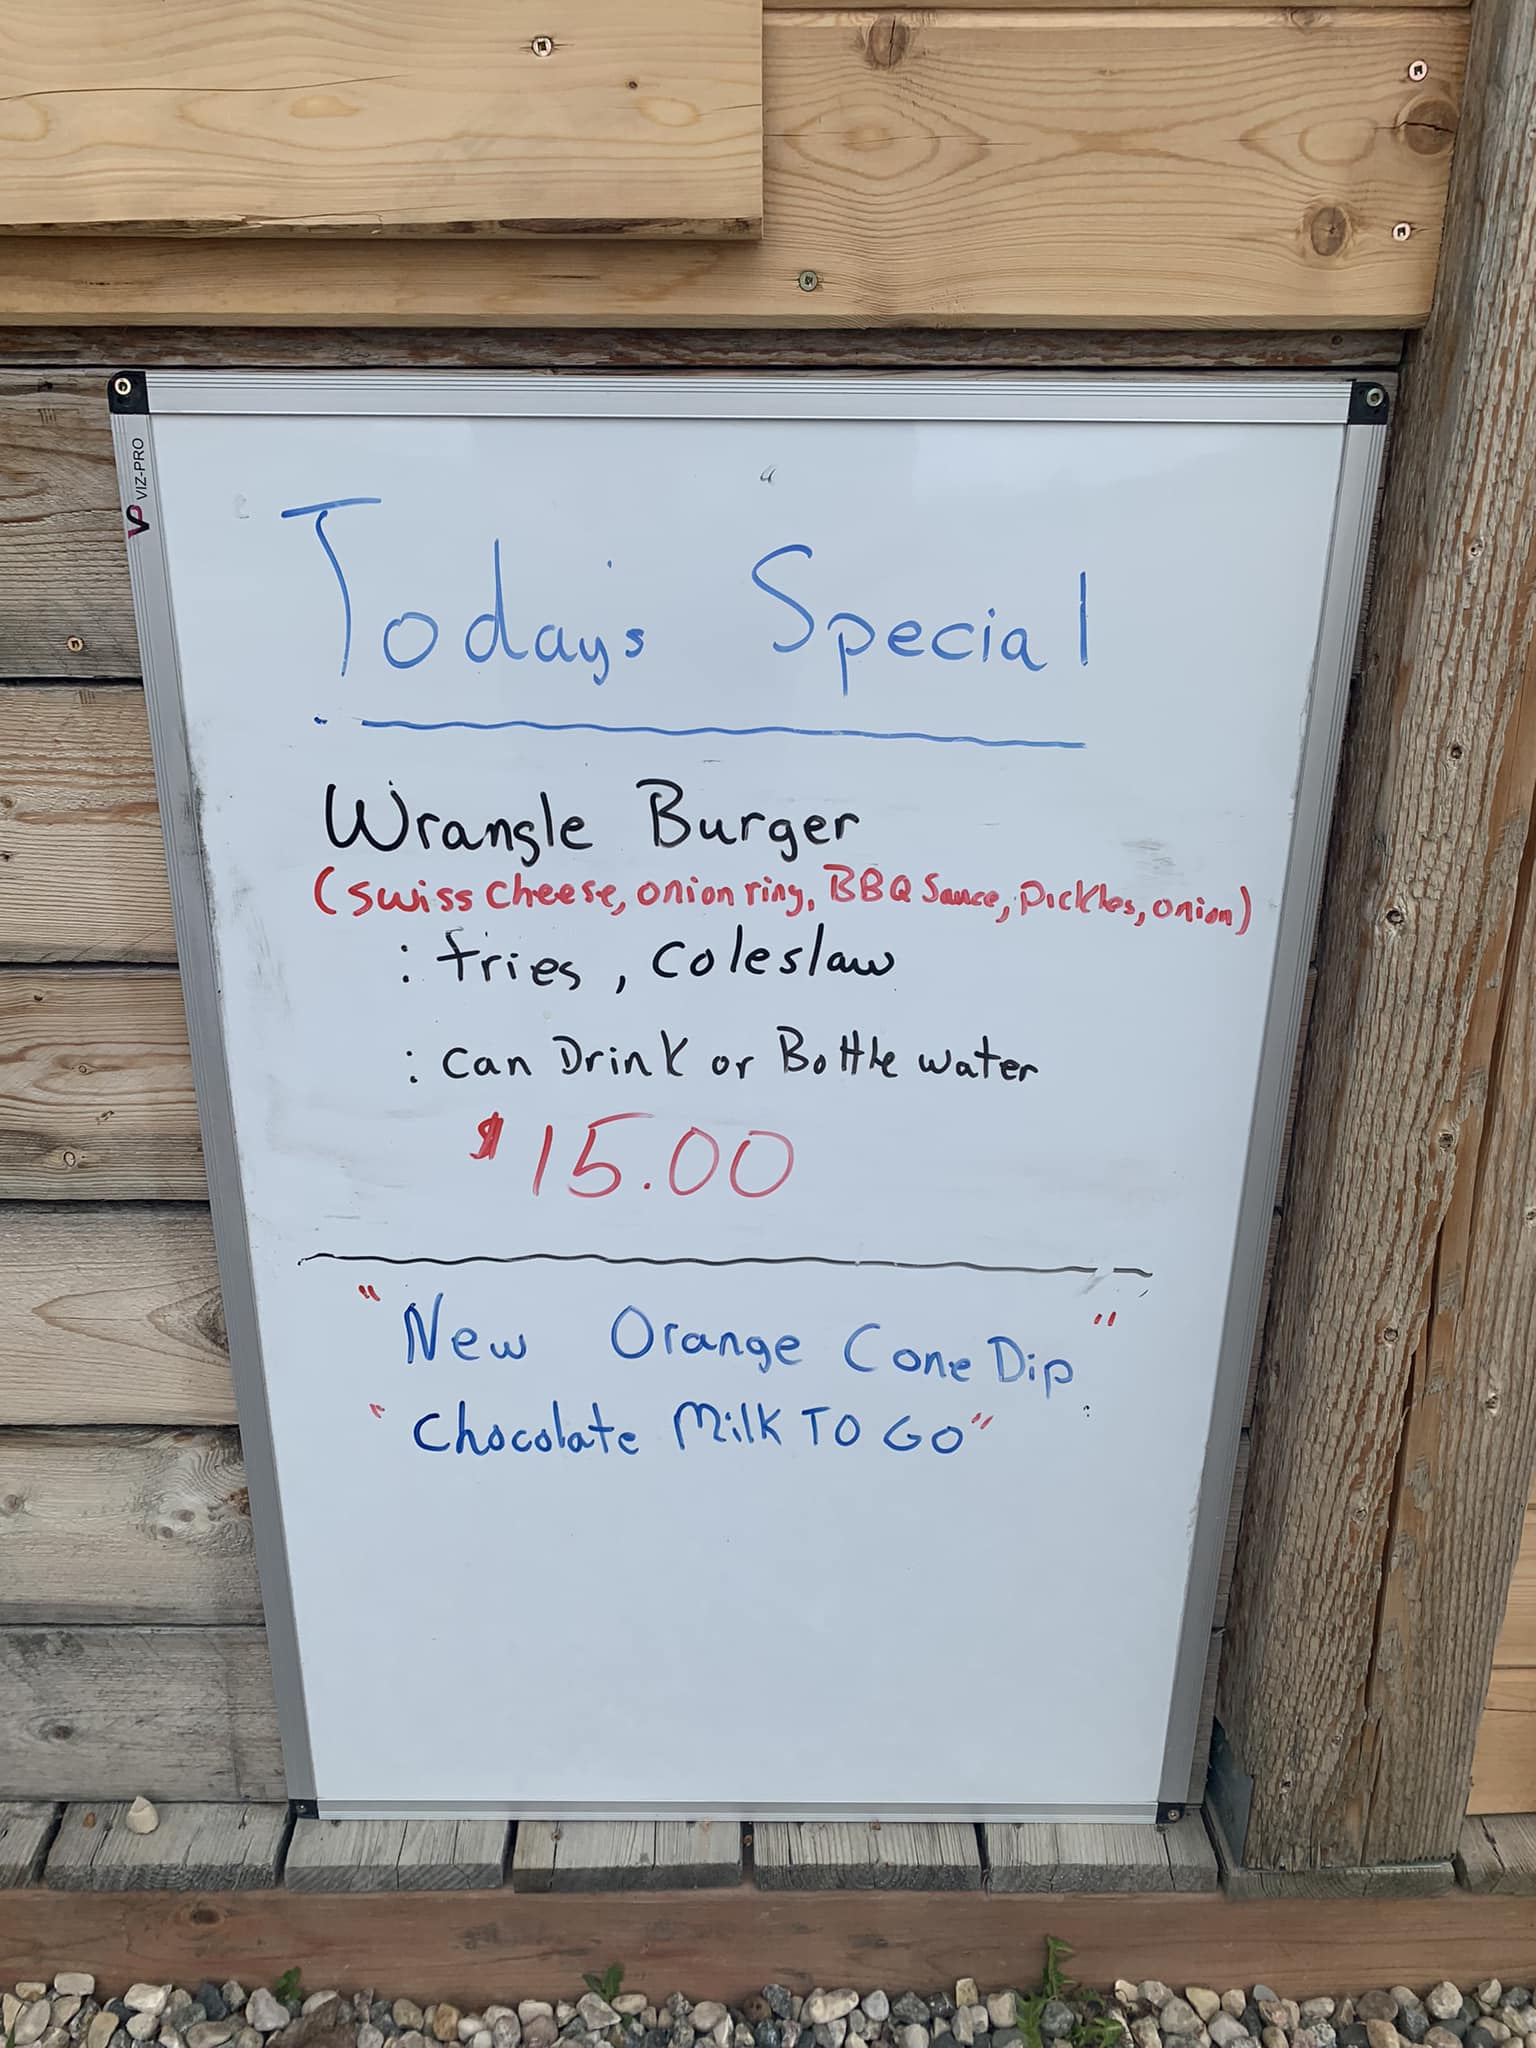 VP VIZ-PRO
Today's Special
Wrangle Burger
(swiss cheese, onion ring, BBQ Sauce, Pickles, onion)
: fries, coleslaw
: can Drink or Bottle water
$15.00
"New Orange Cone Dip"
"Chocolate Milk TO GO"